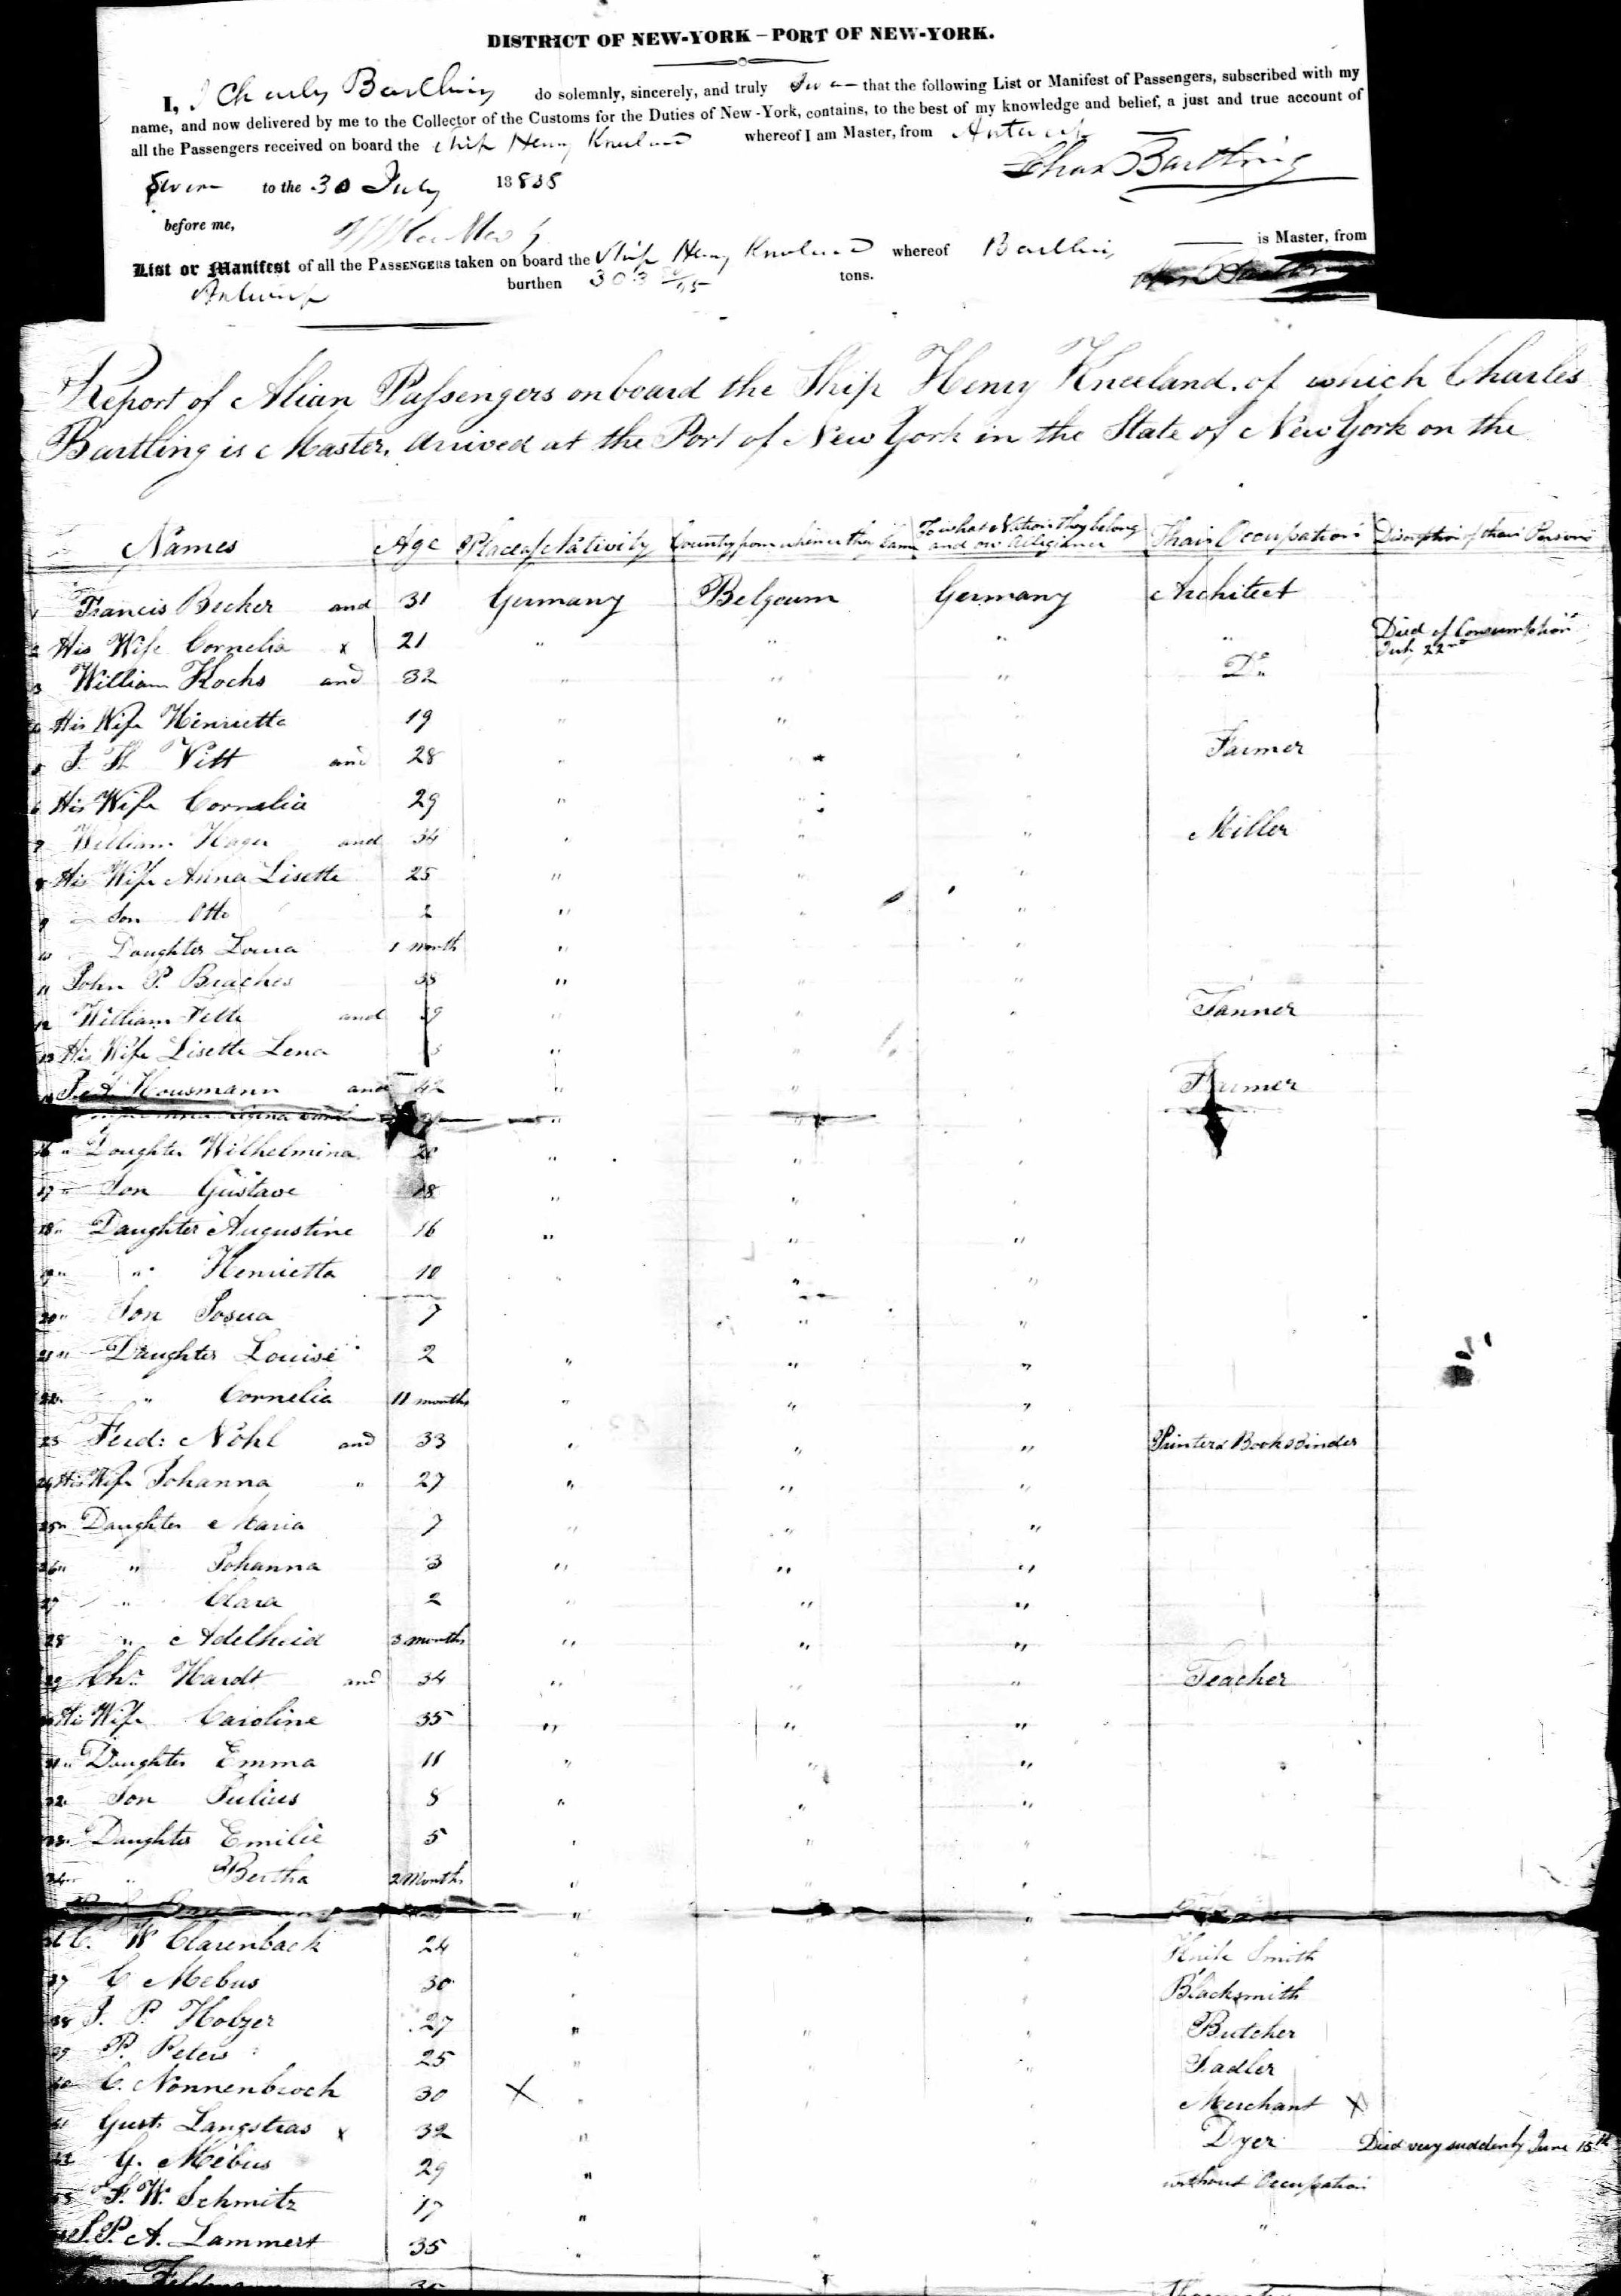 DISTRICT OF NEW-YORK – PORT OF NEW-YORK.
I, Charles Bartling do solemnly, sincerely, and truly that the following List or Manifest of Passengers, subscribed with my
name, and now delivered by me to the Collector of the Customs for the Duties of New-York, contains, to the best of my knowledge and belief, a just and true account of
all the Passengers received on board the Ship Henry Kneeland whereof I am Master, from Antwerp
Chas Bartling
Sworn to the 30 July 1838
before me,
List or Manifest of all the PASSENGERS taken on board the Ship Henry Kneeland whereof Bartling is Master, from
Antwerp burthen 303 tons.
Report of Alian Passengers onboard the Ship Henry Kneeland. of which Charles
Bartling is Master. Arrived at the Port of New York in the State of New York on the
Names Age Place of Nativity Country from whence they Came To what Nation they belong and ow Allegiance Thair Occupation Discription of thair Persons
1 Francis Becker and 31 Germany Belgeum Germany Architect
2 His Wife Cornelia x 21 " " " " Died of Consumption July 22nd
3 William Kochs and 32 " " " Do
4 His Wife Henrietta 19 " "
5 J. H. Vitt and 28 " " " Farmer
6 His Wife Cornelia 29 " "
7 William Hager and 34 " " " Miller
8 His Wife Anna Lisette 25 " " "
9 " Son Otto 2 " " "
10 " Daughter Louisa 1 month " " "
11 John P. Beaches 38 " " "
12 William Fette and 39 " " " Tanner
13 His Wife Lisette Lena " "
14 J. A. Housmann and 42 " " " Farmer
16 " Daughter Wilhelmina 20 " " "
17 " Son Gustave 18 " " "
18 " Daughter Augustine 16 " " "
19 " " Henrietta 10 " " "
20 " Son Josua 7 " "
21 " Daughter Louise 2 " " "
22 " " Cornelia 11 months " " "
23 Ferd: Nohl and 33 " " " Printer & Booksbinder
24 His Wife Johanna " 27 " " "
25 " Daughter Maria 7 " " "
26 " " Johanna 3 " " "
27 " Clara 2 " " "
28 " Adelheid 3 months " " "
29 Chr. Hardt and 34 " " " Teacher
30 His Wife Caroline 35 " " "
31 " Daughter Emma 11 " " "
32 Son Julius 8 " " "
33 " Daughter Emilie 5 " " "
34 " " Bertha 2 Months " " "
36 C. W Clarenback 24 " " " Knife Smith
37 C Mebus 30 " " Blacksmith
38 J. P. Holzer 27 " " " Butcher
39 P. Peters 25 " " " Sadler
40 C. Nonnenbroch 30 X " " Merchant X
41 Gust. Langstras x 32 " " Dyer Died very suddenly June 15th
42 G. Mebius 29 " " without Occupation
43 F. W. Schmitz 17 " " " "
44 S. P. A. Lammert 35 " "